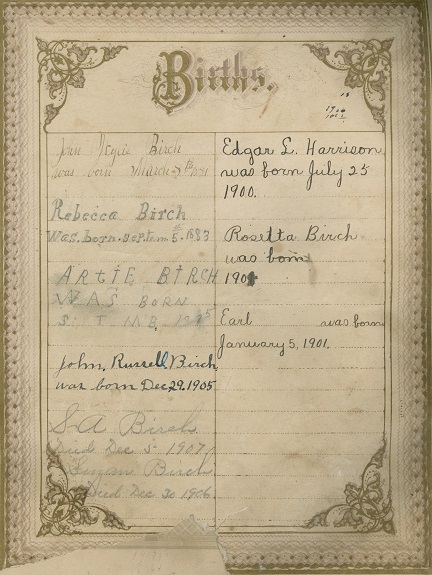 Births.
18
Birch
was born March
Rebecca Birch
was. born. septem. 5. 1883
ARTIE BIRCH
WAS BORN
John, Russell Birch
was born Dec 29. 1905
S A Birch
Died Dec 5- 1907
Simon Birch
Died Dec 30 1906.
Edgar L. Harrison
was born July 25
1900.
Rosetta Birch
was born
Earl was born
January 5, 1901.